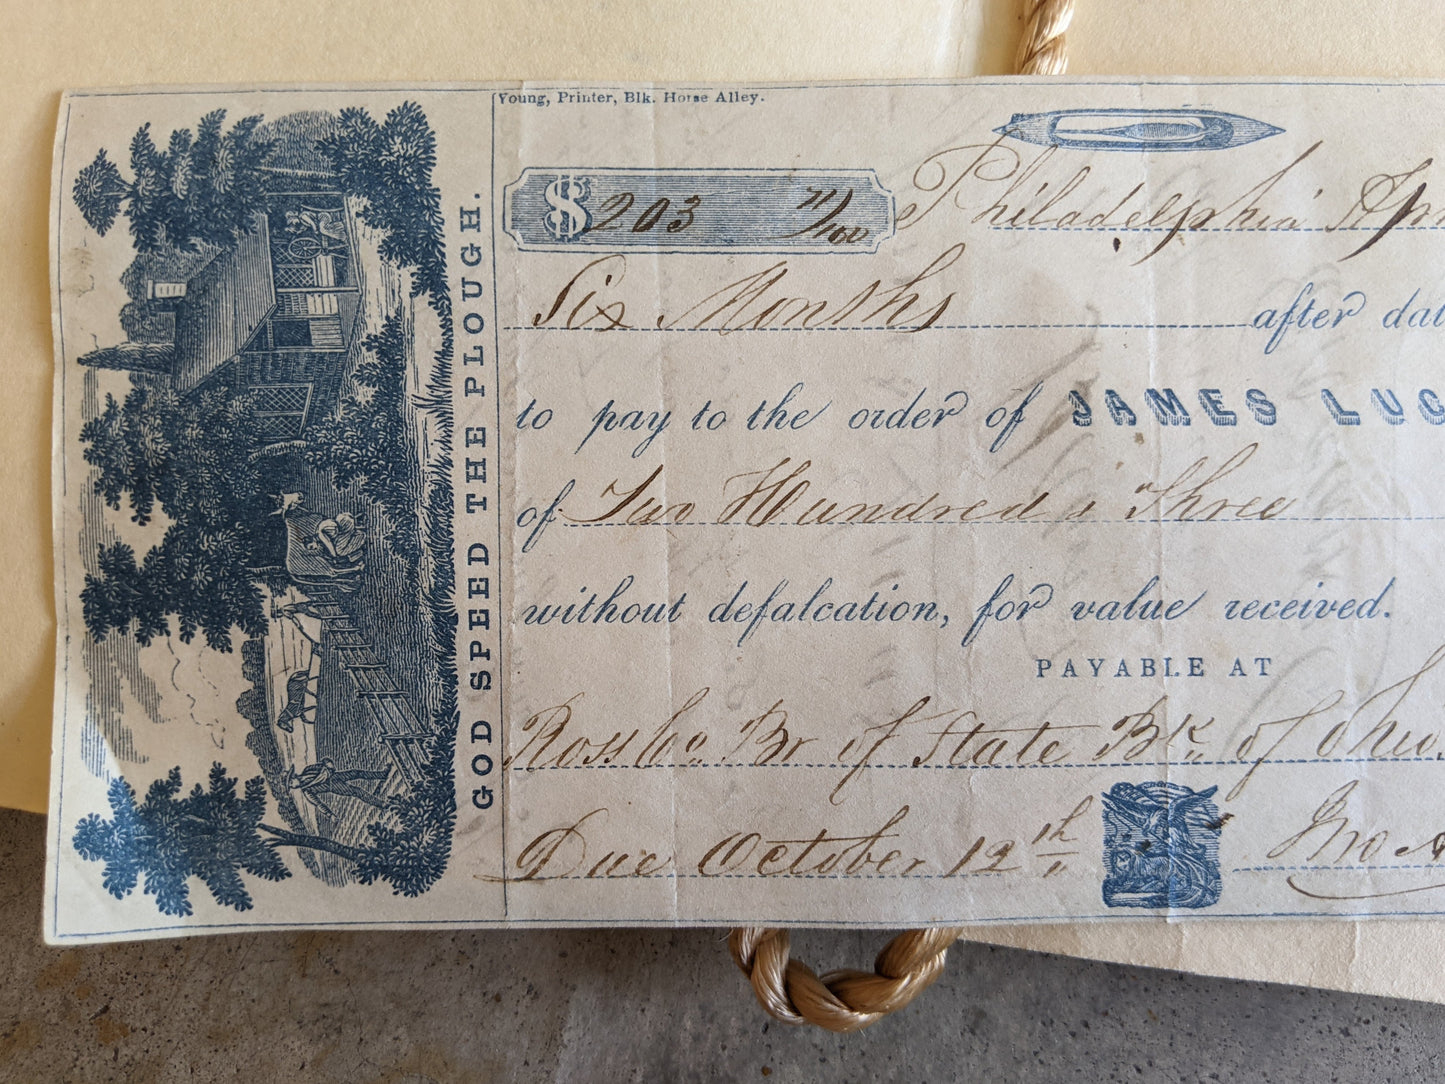 Young, Printer, Blk. Horse Alley.
$ 203 71/100 Philadelphia Apr
Six Months after dat
to pay to the order of JAMES LUC
of Two Hundred & Three
without defalcation, for value received.
PAYABLE AT
Ross Co. Br of State Bk of Ohio
Due October 12th
Jno A
GOD SPEED THE PLOUGH.